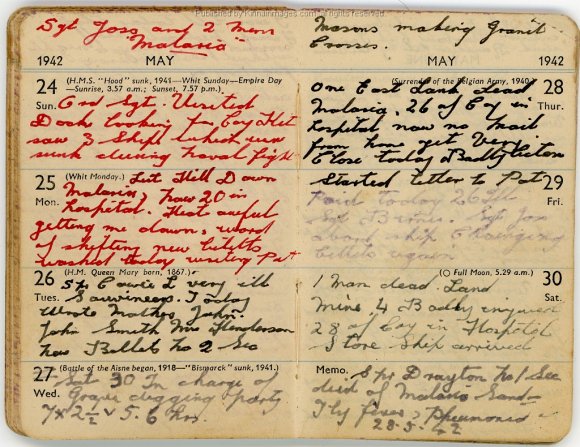 Published by Kirinaimages.com - All rights reserved
Sgt Joss and 2 men
Malaria
1942 MAY
24 (H.M.S. "Hood" sunk, 1941—Whit Sunday—Empire Day
—Sunrise, 3.57 a.m.; Sunset, 7.57 p.m.)
Sun. Ord Sgt. Visited
Dock looking for Coy Kit
saw 3 Ships which were
sunk during naval fight
25 (Whit Monday.) Lit Hill Down
Mon. Malaria, now 20 in
hospital. Heat awful
getting me down, word
of shifting new billets
washed today writing Pat
26 (H.M. Queen Mary born, 1867.)
Tues. Spr Cowie L very ill
Today
Wrote Mother, John,
John Smith Mrs Henderson
now Billet No 2 Sec
27 (Battle of the Aisne began, 1918—"Bismarck" sunk, 1941.)
Wed. Sat 30 In charge of
Grave digging party
7 x 2½ x 5.6 hrs.
Masons making Granit
Crosses.
MAY 1942
(Surrender of the Belgian Army, 1940.) 28
Thur.
One East Lank Dead
Malaria, 26 of Coy in
hospital now no mail
from home yet Very
Close today
Started letter to Pat 29
Fri.
Paid today
Sgt Joss
ship
billets again
(○ Full Moon, 5.29 a.m.) 30
Sat.
1 Man dead. Land
Mine 4 Badly injured
28 of Coy in Hospital
Store Ship arrived
Memo. Spr Drayton No 1 Sec
died of Malaria Sand-
Fly fever, Pneumonia
28.5.42